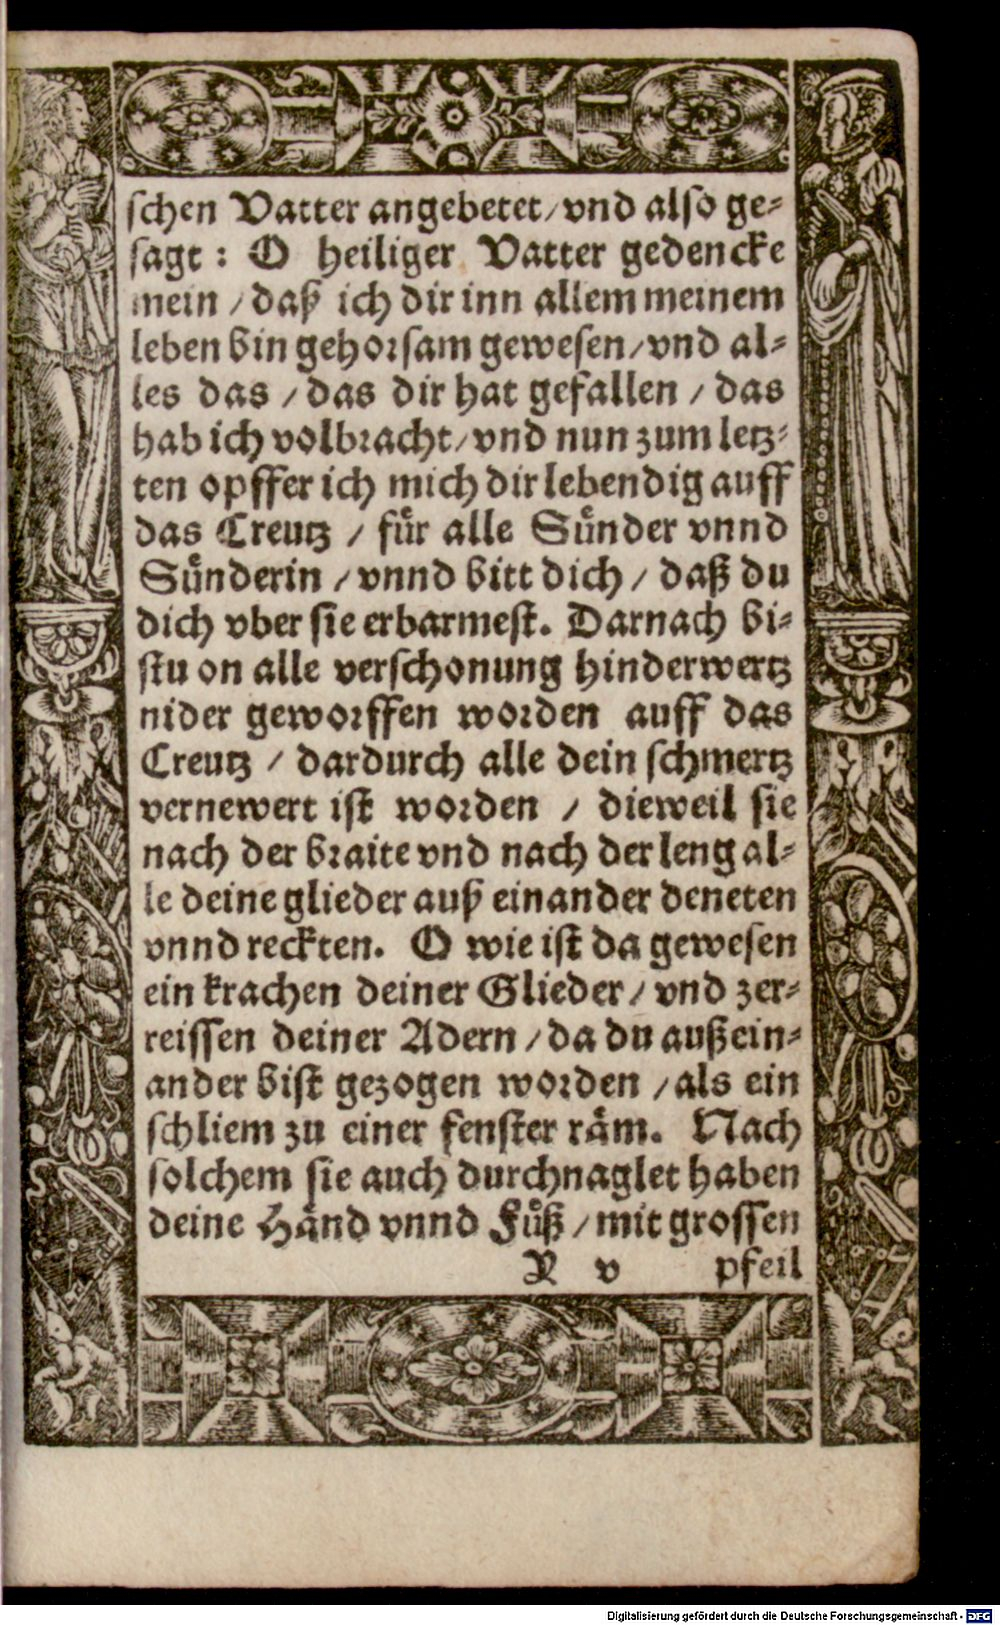 schen Vatter angebetet/vnd also ge-
sagt: O heiliger Vatter gedencke
mein /daß ich dir inn allem meinem
leben bin gehorsam gewesen/vnd al-
les das /das dir hat gefallen /das
hab ich volbracht/vnd nun zum letz-
ten opffer ich mich dir lebendig auff
das Creutz / fůr alle Sůnder vnnd
Sůnderin /vnnd bitt dich /daß du
dich vber sie erbarmest. Darnach bi-
stu on alle verschonung hinderwertz
nider geworffen worden auff das
Creutz / dardurch alle dein schmertz
vernewert ist worden / dieweil sie
nach der braite vnd nach der leng al-
le deine glieder auß einander deneten
vnnd reckten. O wie ist da gewesen
ein krachen deiner Glieder/ vnd zer-
reissen deiner Adern /da du auß ein-
ander bist gezogen worden /als ein
schliem zu einer fenster råm. Nach
solchem sie auch durchnaglet haben
deine Hånd vnnd Fůß /mit grossen
R v pfeil
Digitalisierung gefördert durch die Deutsche Forschungsgemeinschaft - DFG